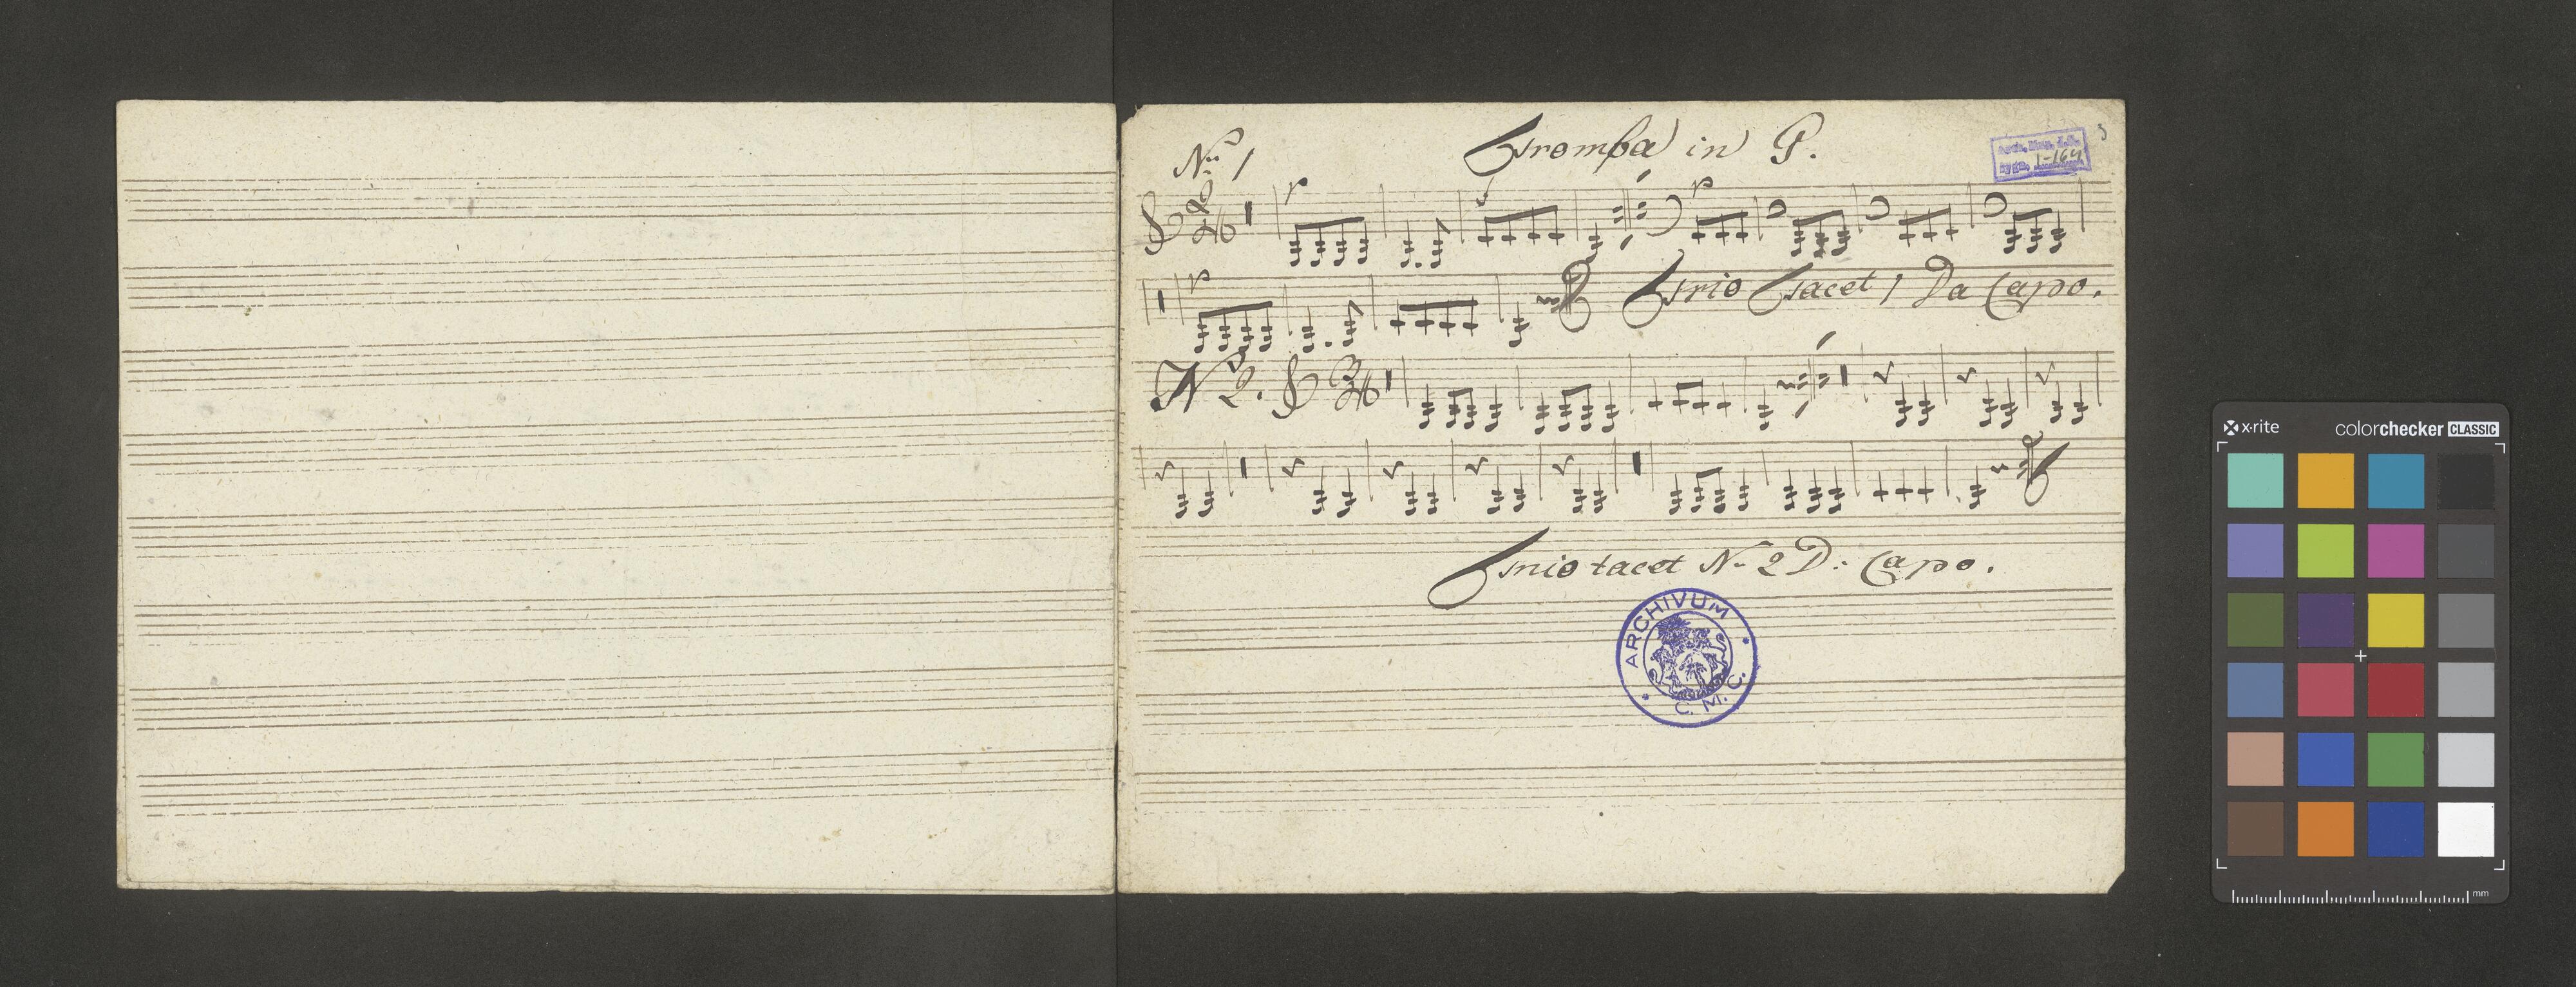 Tromba in G.
No 1
Trio Tacet / Da Capo.
No 2.
Trio tacet No 2 D: Capo.
ARCHIVUM
C. M. C.
x-rite colorchecker CLASSIC
mm